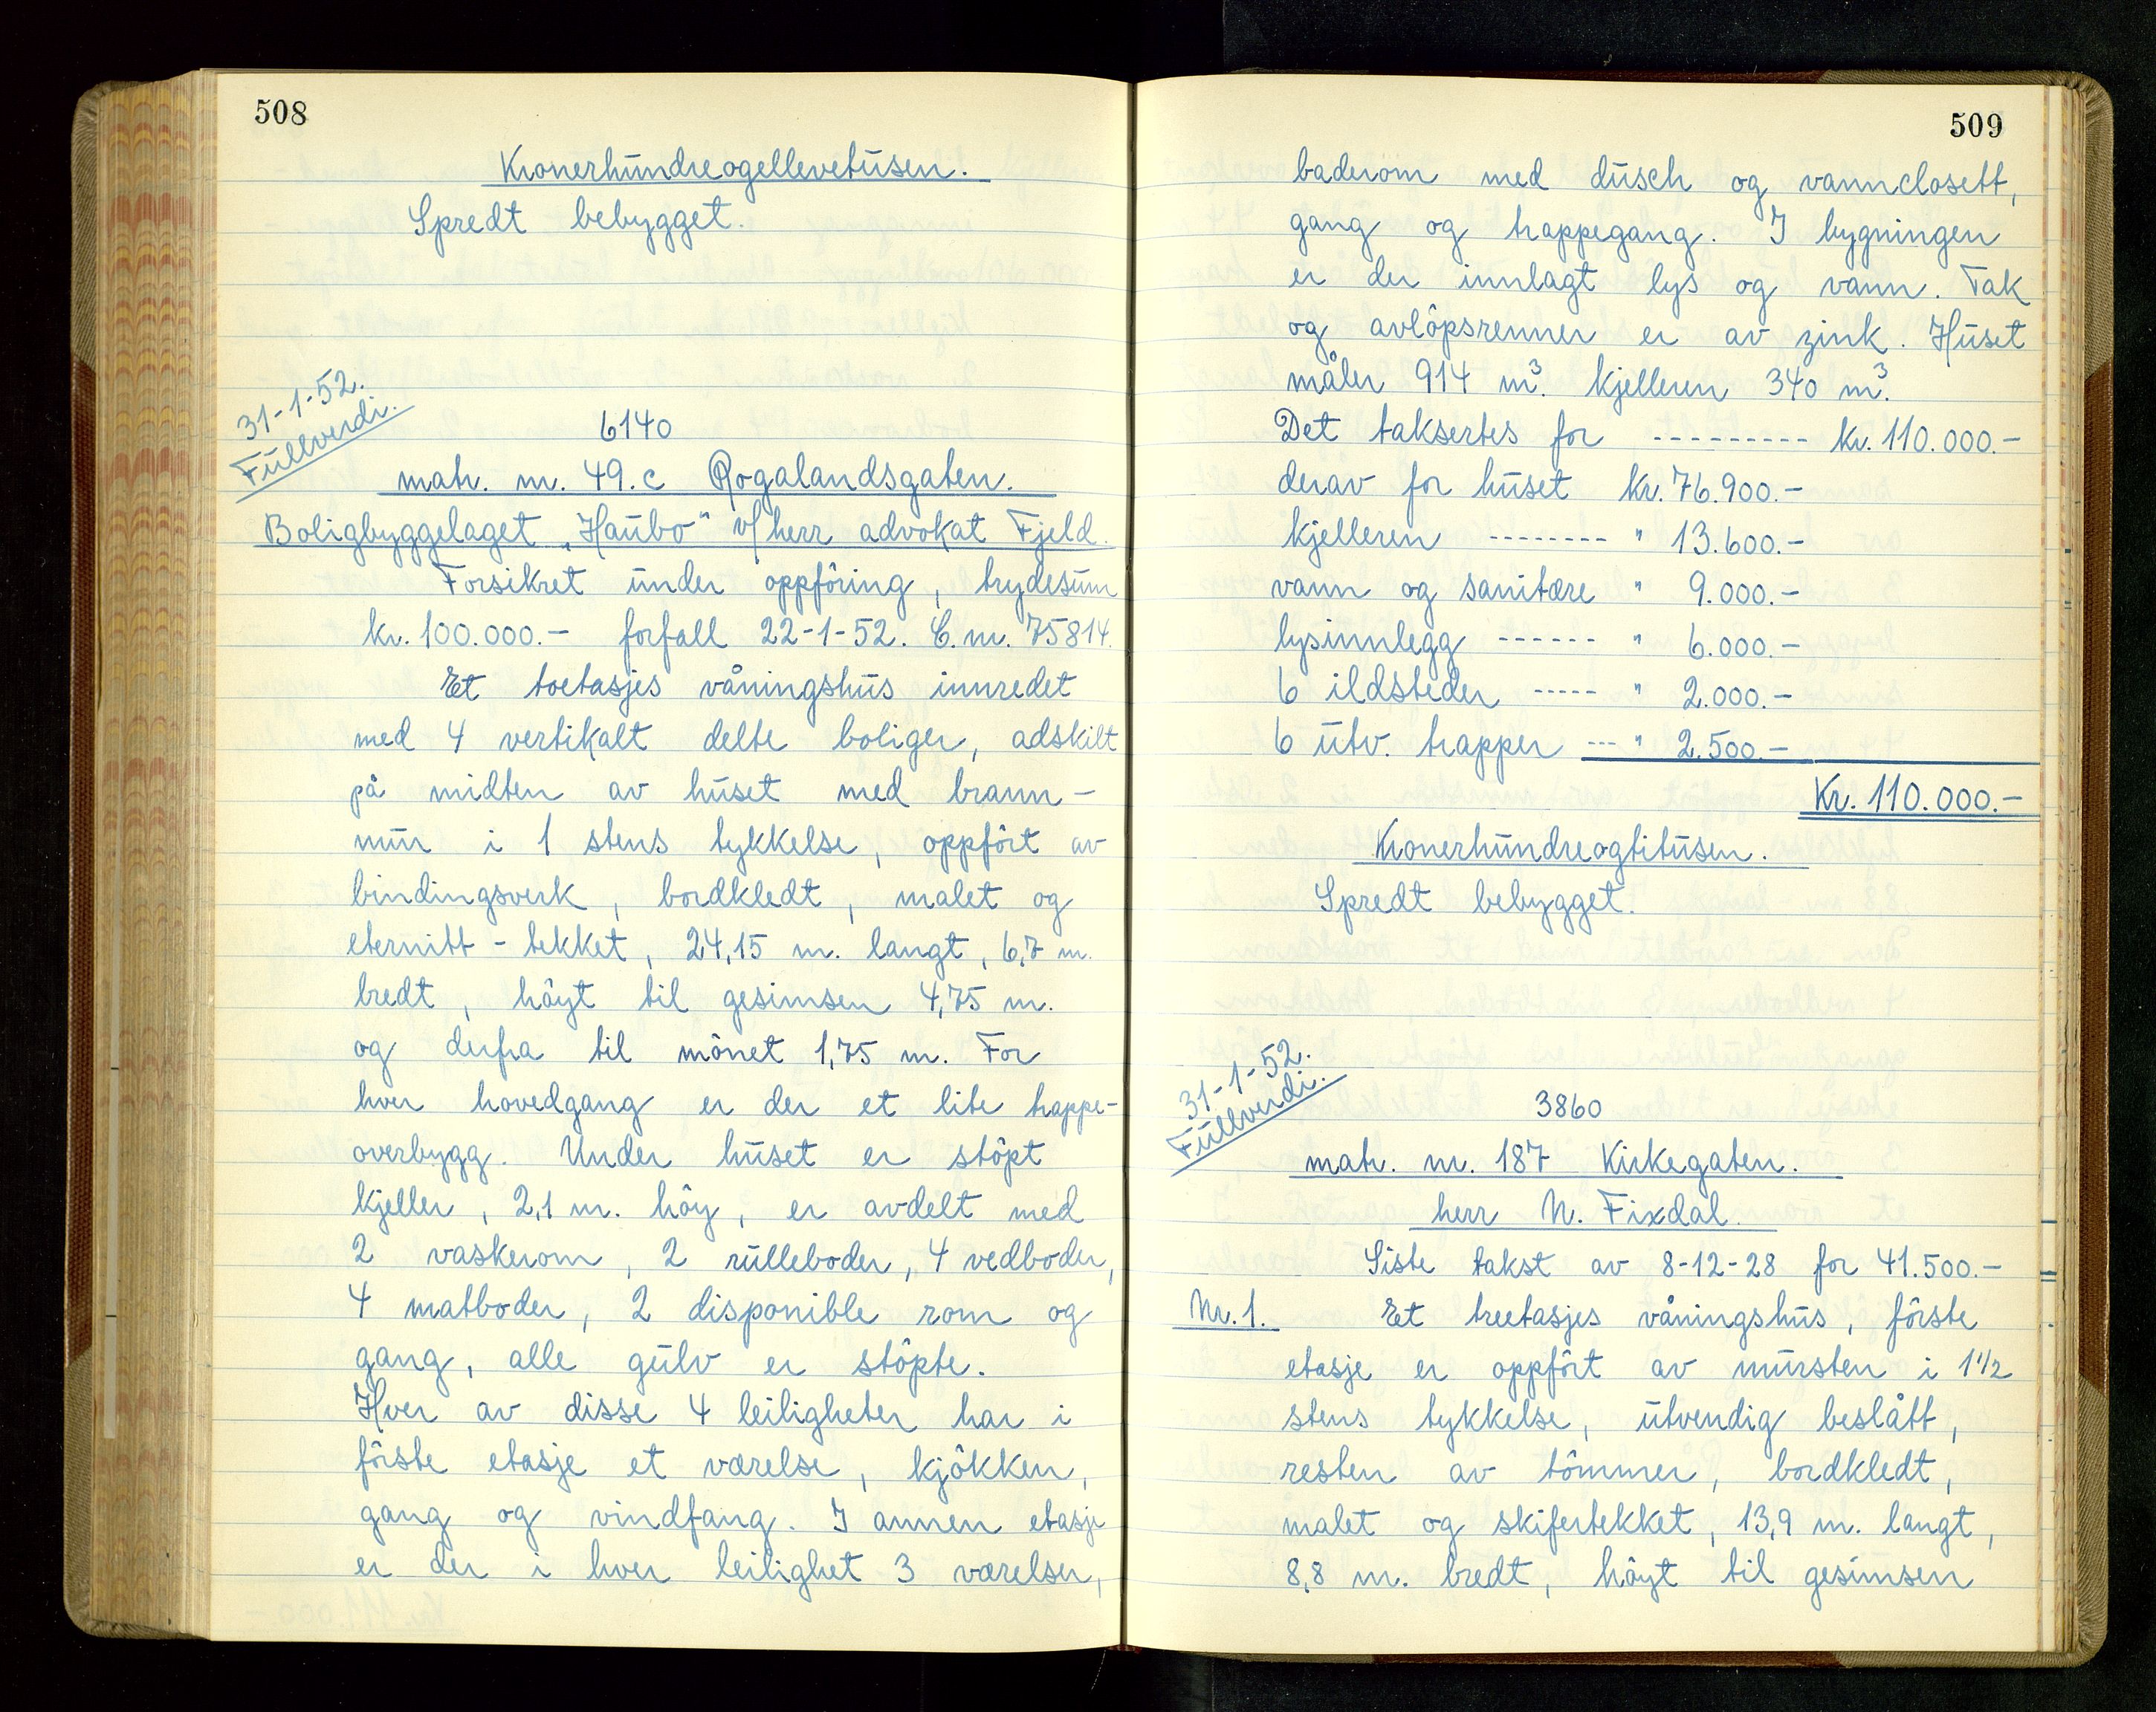 508
Kronerhundreogellevetusen.
Spredt bebygget.
31-1-52.
Fullverdi.
6140
matr. nr. 49.c Rogalandsgaten.
Boligbyggelaget „Haubo" v/herr advokat Fjeld.
Forsikret under oppföring, trydesum
kr. 100.000.- forfall 22-1-52. C. nr. 75814.
Et toetasjes våningshus innredet
med 4 vertikalt delte boliger, adskilt
på midten av huset med brann-
mur i 1 stens tykkelse, oppfört av
bindingsverk, bordkledt, malet og
eternitt-tekket, 24,15 m. langt, 6,7 m.
bredt, höyt til gesimsen 4,75 m.
og derfra til mönet 1,75 m. For
hver hovedgang er der et lite trappe-
overbygg. Under huset er stöpt
kjeller, 2,1 m. höy, er avdelt med
2 vaskerom, 2 rulleboder, 4 vedboder,
4 matboder, 2 disponible rom og
gang, alle gulv er stöpte.
Hver av disse 4 leiligheter har i
förste etasje et værelse, kjökken,
gang og vindfang. I annen etasje
er der i hver leilighet 3 værelser,
509
baderom med dusch og vannclosett,
gang og trappegang. I bygningen
er der innlagt lys og vann. Tak
og avlöpsrenner er av zink. Huset
måler 914 m³. kjelleren 340 m³.
Det taksertes for --------- kr. 110.000.-
derav for huset kr. 76.900.-
kjelleren -------- " 13.600.-
vann og sanitære " 9.000.-
lysinnlegg ------ " 6.000.-
6 ildsteder ----- " 2.000.-
6 utv. trapper --- " 2.500.-
Kr. 110.000.-
Kronerhundreogtitusen.
Spredt bebygget.
31-1-52.
Fullverdi.
3860
matr. nr. 187 Kirkegaten.
herr N. Fixdal.
Siste takst av 8-12-28 for 41.500.-
Nr. 1. Et treetasjes våningshus, förste
etasje er oppfört av mursten i 1½
stens tykkelse, utvendig beslått,
resten av tömmer, bordkledt,
malet og skifertekket, 13,9 m. langt,
8,8 m. bredt, höyt til gesimsen